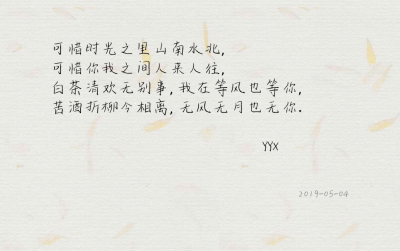 可惜时光之里山南水北,
可惜你我之间人来人往,
白茶清欢无别事,我在等风也等你,
苦酒折柳今相离,无风无月也无你.
yyx
2019-05-04